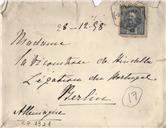 28-12-98
Madame
la Vicomtesse de Pindella
Légation du Portugal
Berlin
Allemagne
(19)